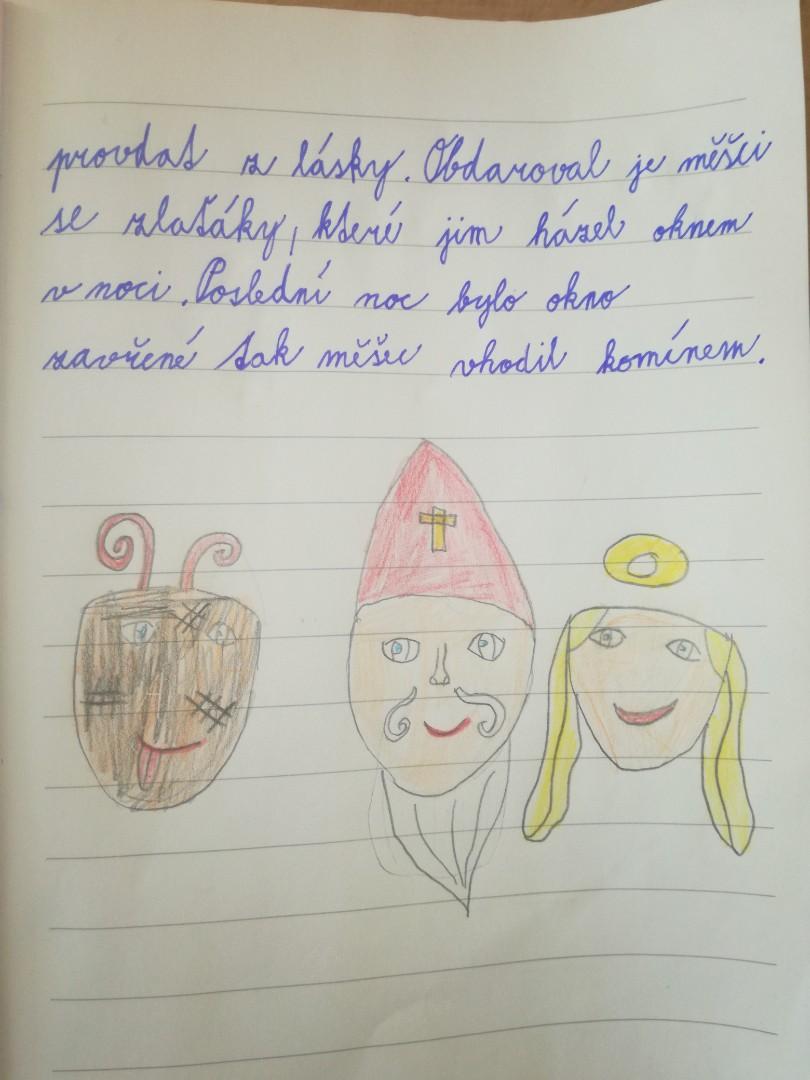 provdat z lásky. Obdaroval je měšci
se zlaťáky, které jim házel oknem
v noci. Poslední noc bylo okno
zavřené tak měšec vhodil komínem.